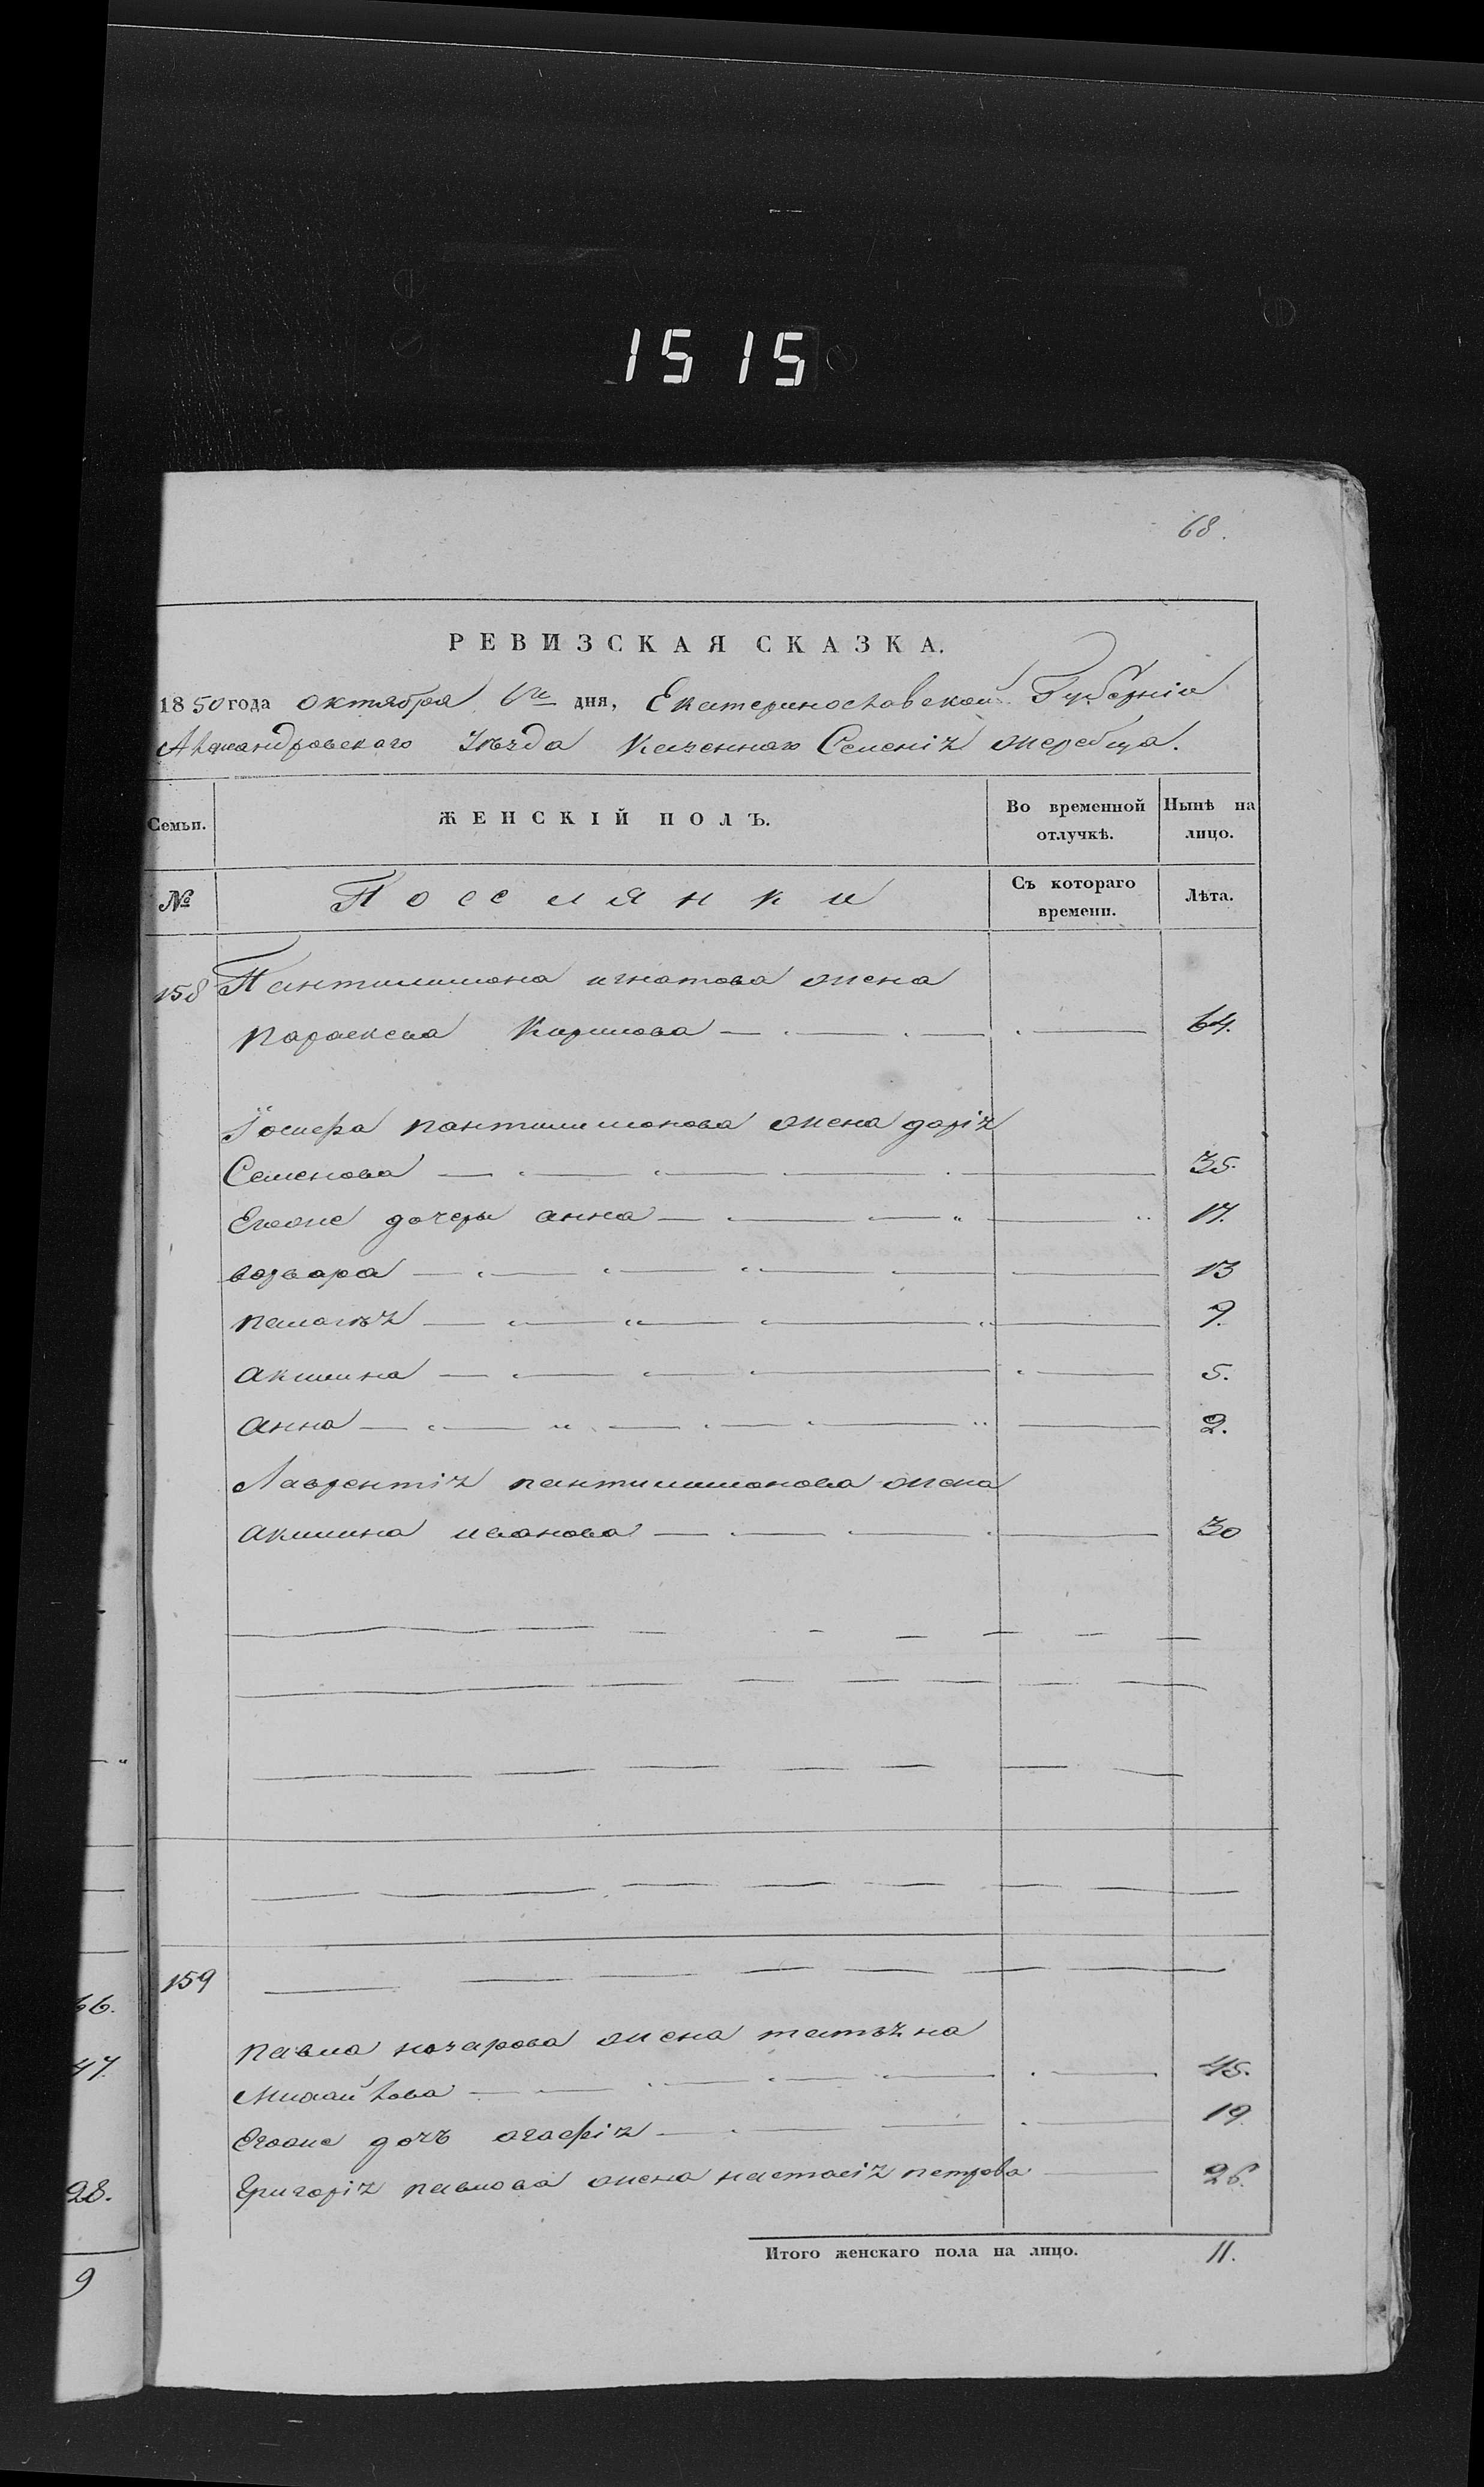 1515
68.
РЕВИЗСКАЯ СКАЗКА.
1850 года октября 6го дня, Екатеринославской Губерніи
Александровскаго уѣзда казеннаго Селенія жеребца.
Семьи.
ЖЕНСКІЙ ПОЛЪ.
Во временной отлучкѣ.
Нынѣ на лицо.
№
Поселянки
Съ котораго времени.
Лѣта.
158 Пантилимона игнатова жена
параскева Кирилова 64.
Іосифа пантилимонова жена дарія
Семенова 35.
Егоже дочеры анна 17.
варвара 13
пелагѣя 7.
акилина 5.
анна 2.
Лаврентія пантилимонова жена
акилина иванова 30
159
павла назарова жена татѣяна
Михайлова 45.
Егоже дочь агафія 19
Григорія павлова жена настасія петрова 26.
Итого женскаго пола на лицо. 11.
66.
47.
28.
9